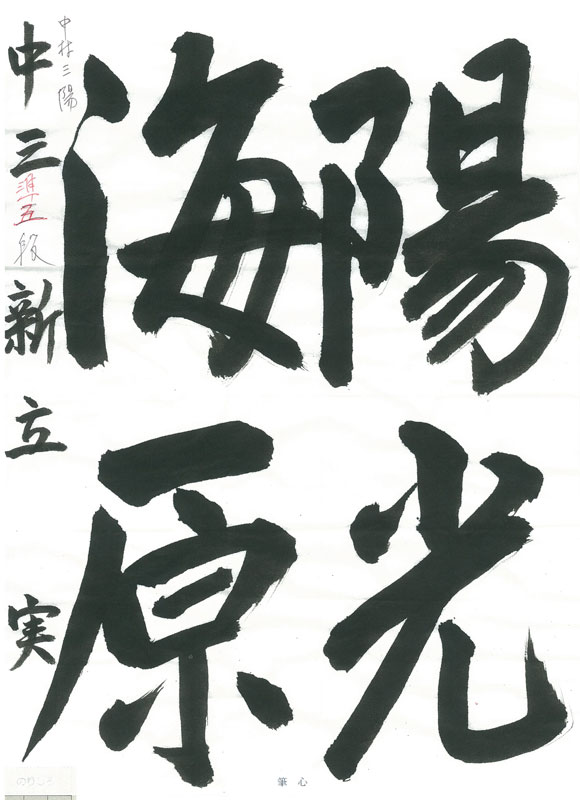 陽光
海原
中三 準五段 新立実
中林三陽
筆心
のりしろ